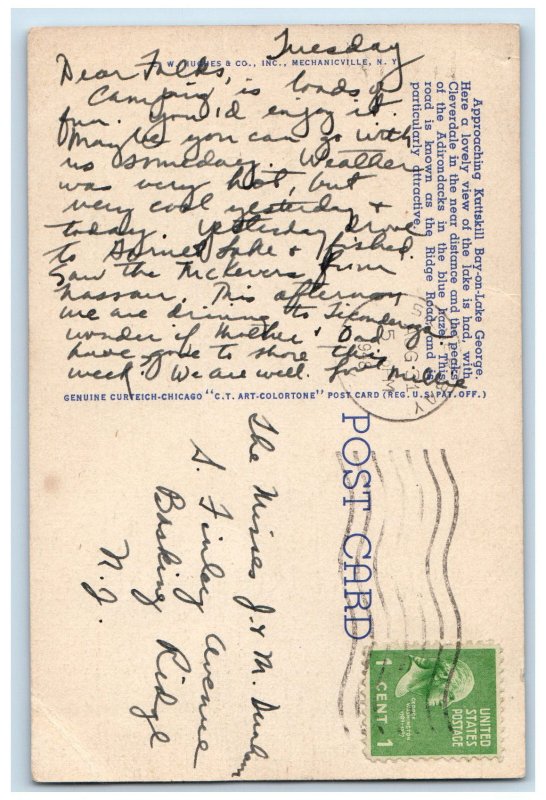 W. HUGHES & CO., INC., MECHANICVILLE, N. Y.
Tuesday
Dear Folks,
Camping is loads of
fun. You'd enjoy it.
Maybe you can go with
us someday. Weather
was very hot, but
very cool yesterday &
today. Yesterday drove
to Lake & fished.
Saw the McKevers from
Nassau. This afternoon
we are driving to Ticonderoga
wonder if Mother & Dad
have gone to shore this
week. We are well. Millie
Approaching Kattskill Bay-on-Lake George.
Here a lovely view of the lake is had, with
Cleverdale in the near distance and the peaks
of the Adirondacks in the blue haze. This
road is known as the Ridge Road and is
particularly attractive.
GENUINE CURTEICH-CHICAGO "C.T. ART-COLORTONE" POST CARD (REG. U.S. PAT. OFF.)
POST CARD
The Misses J. & M. Dunham
S. Finley Avenue
Basking Ridge
N.J.
AUG 31
5 PM
UNITED
STATES
POSTAGE
GEORGE
WASHINGTON
1 CENT 1